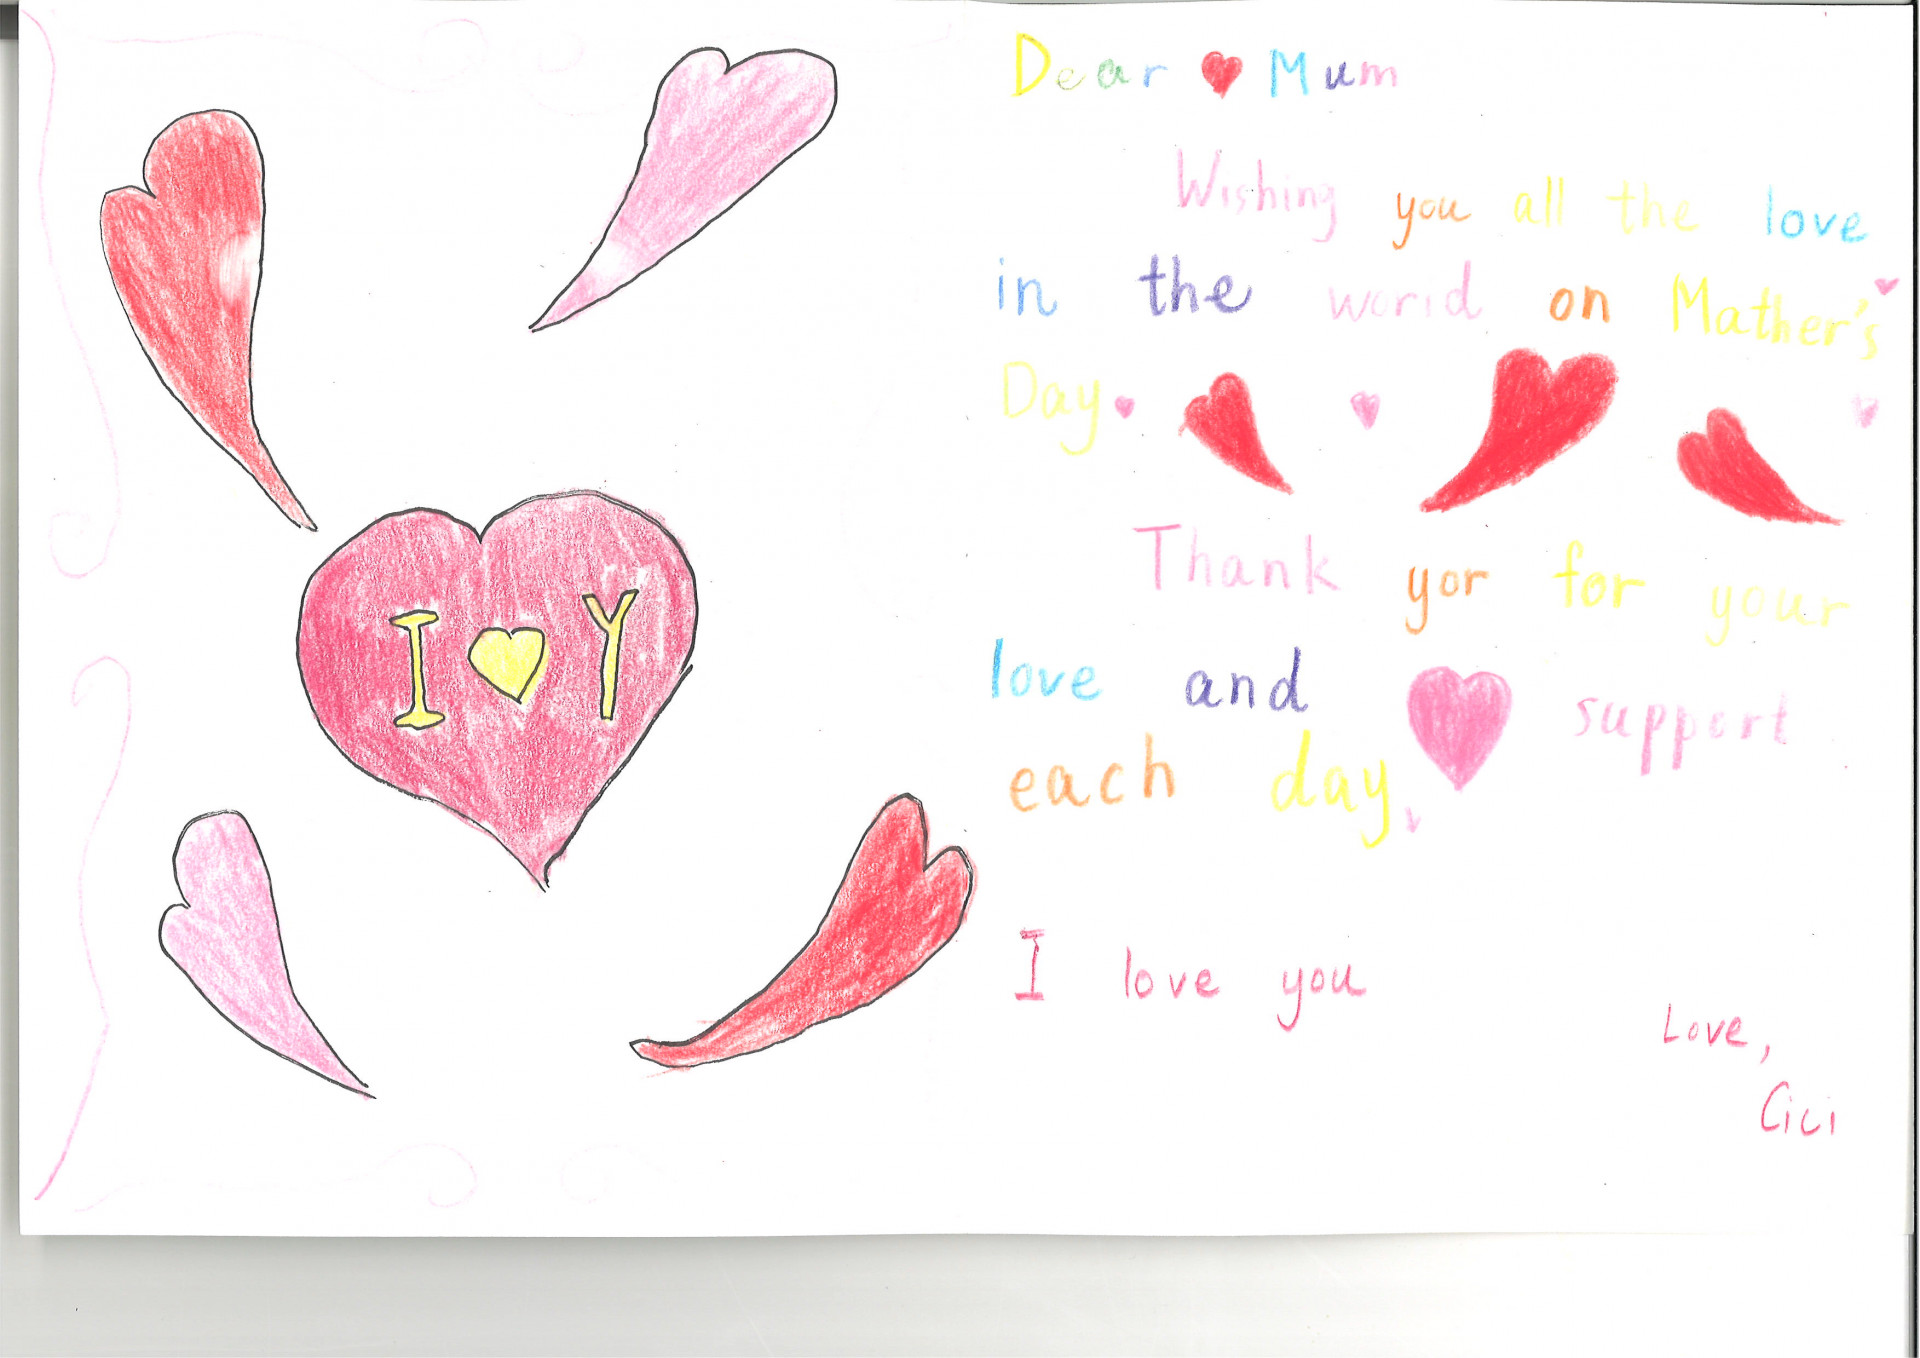 I ♥ Y
Dear ♥ Mum
Wishing you all the love
in the world on Mather's
Day
Thank yor for your
love and ♥ support
each day
I love you
Love,
Cici